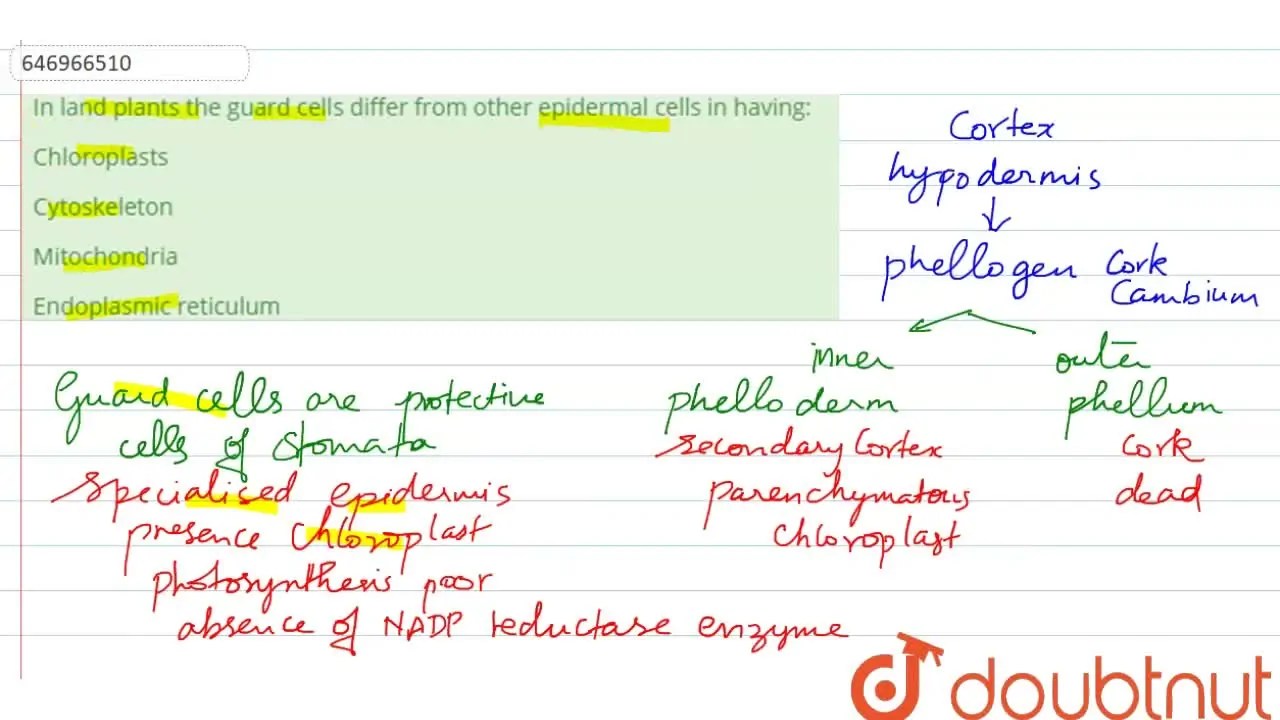 646966510
In land plants the guard cells differ from other epidermal cells in having:
Chloroplasts
Cytoskeleton
Mitochondria
Endoplasmic reticulum
Cortex
hypodermis
phellogen Cork
Cambium
inner
outer
phelloderm
phellum
secondary Cortex
cork
parenchymatous
dead
chloroplast
Guard cells are protective
cells of stomata
Specialised epidermis
presence Chloroplast
photosynthesis poor
absence of NADP reductase enzyme
doubtnut